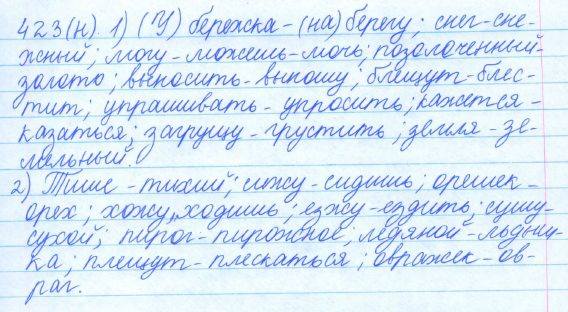 423(н). 1) (У) бережка - (на) берегу; снег - сне-
жный; могу - можешь - мочь; позолоченный -
золото; выносить - выношу; блещут - блес-
тит; упрашивать - упросить; кажется -
казаться; загрущу - грустить; земля - зе-
мельный.
2) Тише - тихий; сижу - сидишь; орешек -
орех; хожу, ходишь; езжу - ездить; сушу -
сухой; пирог - пирожное; ледяной - льдин-
ка; плещут - плескаться; овражек - ов-
раг.